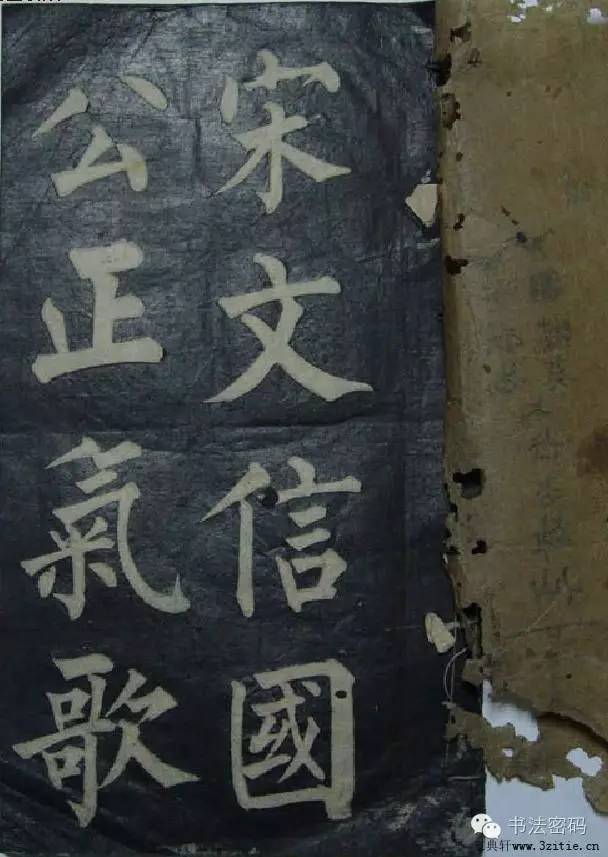 宋文信國
公正氣歌
书法密码
典轩www.3zitie.cn